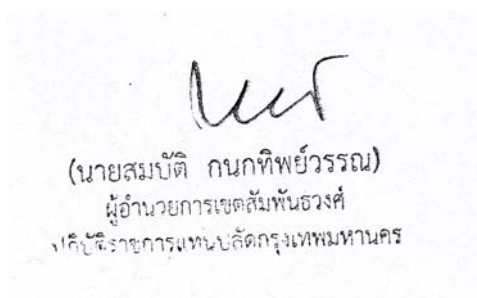 (นายสมบัติ กนกทิพย์วรรณ)
ผู้อำนวยการเขตสัมพันธวงศ์
ปฏิบัติราชการแทนปลัดกรุงเทพมหานคร